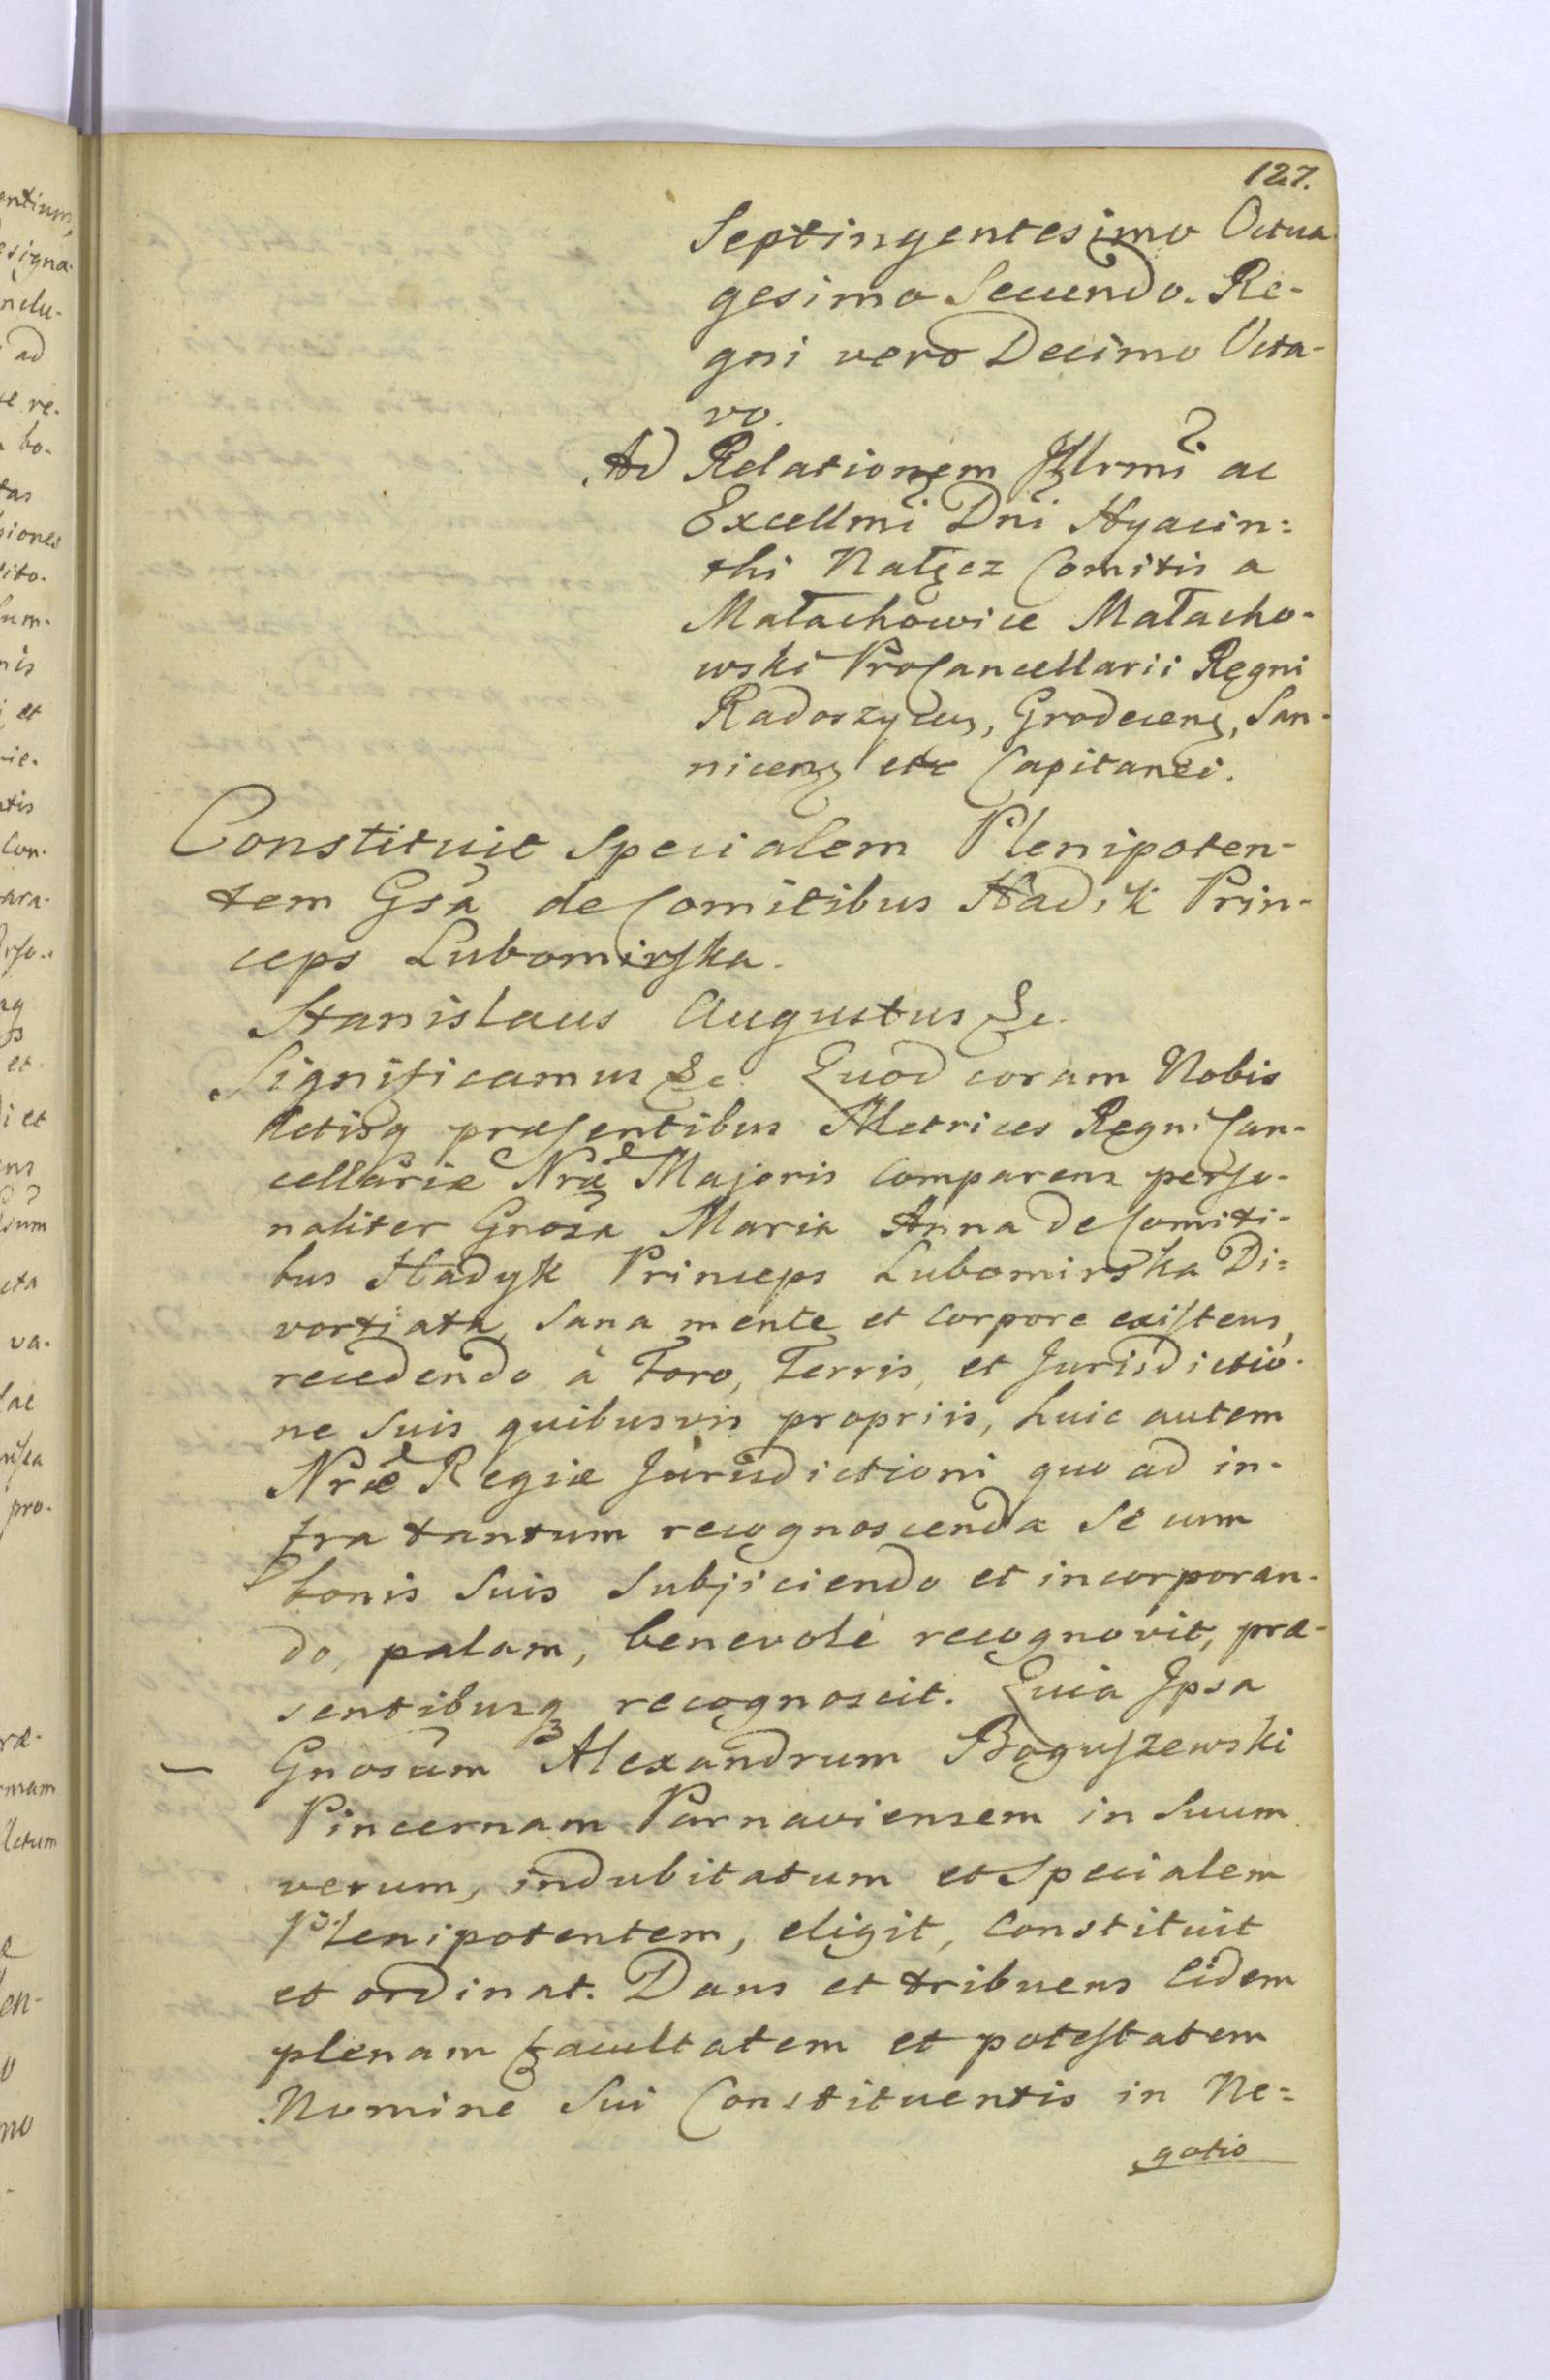 127.
Septingentesimo Octua
gesimo Secundo. Re-
gni vero Decimo Octa-
vo.
Ad Relationem Jllrmi ac
Excellmi Dni Hyacin=
thi Nałęcz Comitis a
Małachowice Małacho-
wski ProCancellarii Regni
Radoszycen, Grodecen, San-
nicen etc Capitanei.
Constituit Specialem Plenipoten-
tem Gsa de Comitibus Hadik Prin-
ceps Lubomirska.
Stanislaus Augustus &c.
Significamus &c. Quod coram Nobis
Actisq præsentibus Metrices Regni Can-
cellariæ Nræ Majoris Comparens perso-
naliter Gnosa Maria Anna de Comiti-
bus Hadyk Princeps Lubomirska Di=
vortiata, Sana mente et Corpore existens,
recedendo à Foro, Terris, et Jurisdictio-
ne Suis quibusvis propriis, huic autem
Nræ Regiæ Jurisdictioni quo ad in-
fra tantum recognoscenda Se cum
bonis Suis Subjiciendo et incorporan-
do, palam, benevolè recognovit, præ-
sentibusq recognoscit. Quia Jpsa
Gnosum Alexandrum Boguszewski
Pincernam Parnaviensem in Suum
verum, indubitatum et Specialem
Plenipotentem, eligit, Constituit
et ordinat. Dans et tribuens Eidem
plenam facultatem et potestatem
Nomine Sui Constituentis in Ne=
gotio